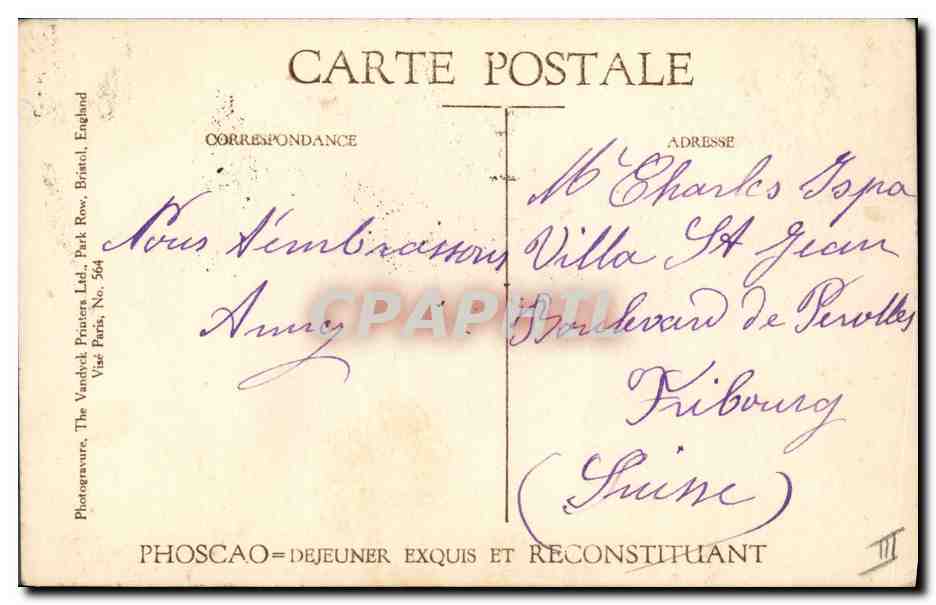 CARTE POSTALE
CORRESPONDANCE
ADRESSE
Nous t'embrassons
Anny
Mr Charles Ispa
Villa St Jean
Boulevard de Perolles
Fribourg
(Suisse)
PHOSCAO = DEJEUNER EXQUIS ET RECONSTITUANT
Photogravure, The Vandyck Printers Ltd., Park Row, Bristol, England
Visé Paris, No. 564
CPAPHIL
III